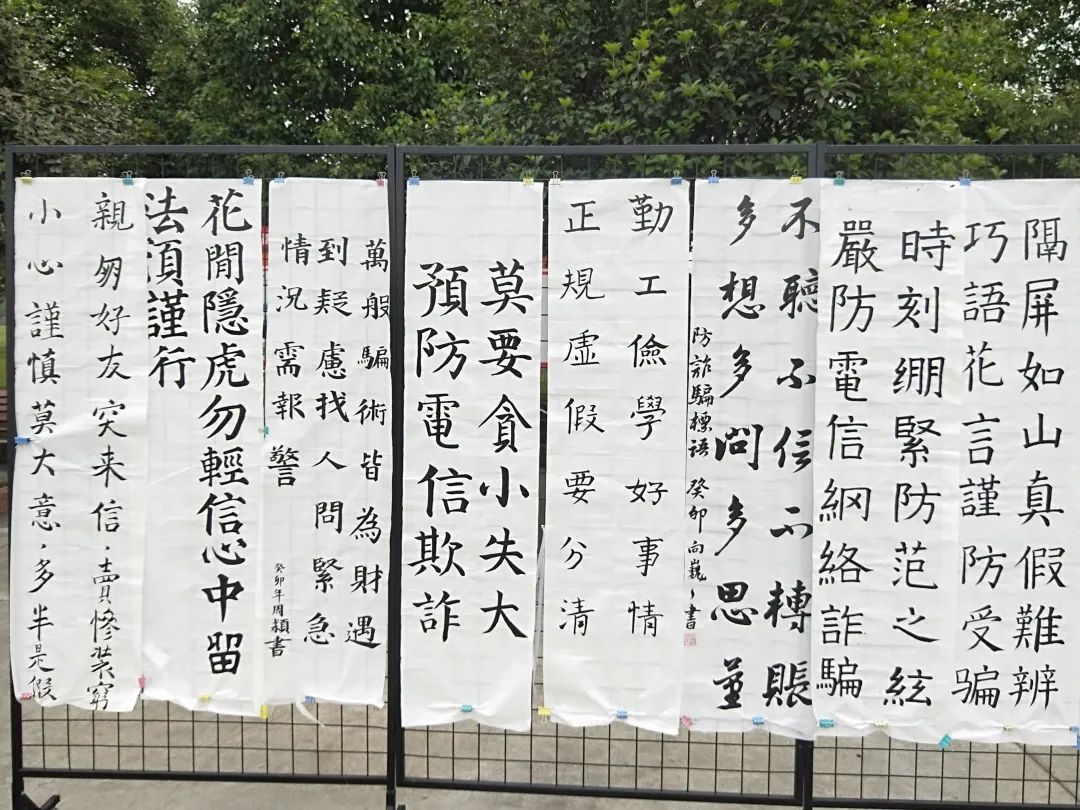 隔屏如山真假難辨
巧語花言謹防受骗
時刻绷緊防范之絃
嚴防電信網絡詐騙
不聽不信不轉賬
多想多問多思量
防詐騙標語 癸卯向巍巍書
勤工儉學好事情
正規虛假要分清
莫要貪小失大
預防電信欺詐
萬般騙術皆為財遇
到疑慮找人問緊急
情況需報警
癸卯年周穎書
花閒隱虎勿輕信心中留
法須謹行
親朋好友突来信，賣慘装窮
小心謹慎莫大意，多半是假